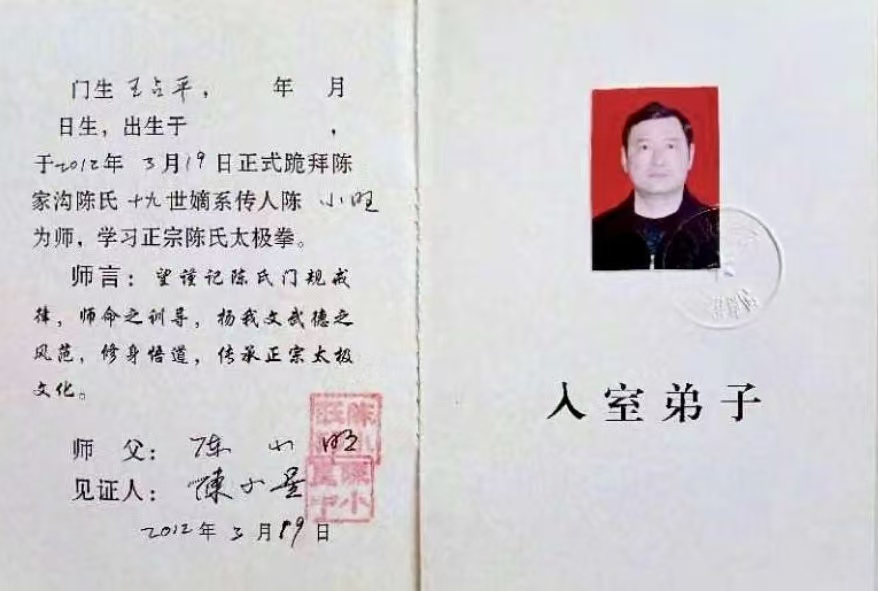 门生 王占平， 年 月
日生，出生于 ，
于2012年 3月19日正式跪拜陈
家沟陈氏十九世嫡系传人陈 小旺
为师，学习正宗陈氏太极拳。
师言：望谨记陈氏门规戒
律，师命之训导，扬我文武德之
风范，修身悟道，传承正宗太极
文化。
师 父：陈小旺
见证人：陳小星
2012年3月19日
入室弟子